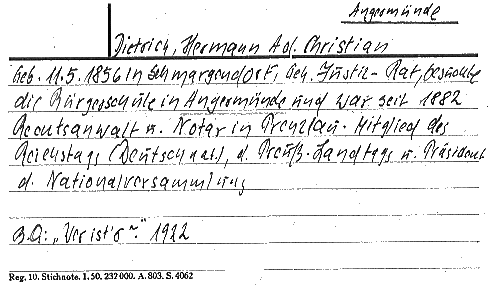 Angermünde
Dietrich, Hermann Ad. Christian
Geb. 11.5.1856 in Schmargendorf, Geh. Justiz-Rat, besuchte
die Bürgerschule in Angermünde und war seit 1882
Rechtsanwalt u. Notar in Prenzlau. Mitglied des
Reichstags (Deutschnat.), d. Preuß. Landtags u. Präsident
d. Nationalversammlung
B.Q: „Wer ist's." 1922
Reg. 10. Stichnote. 1. 50. 232000. A. 803. S. 4062